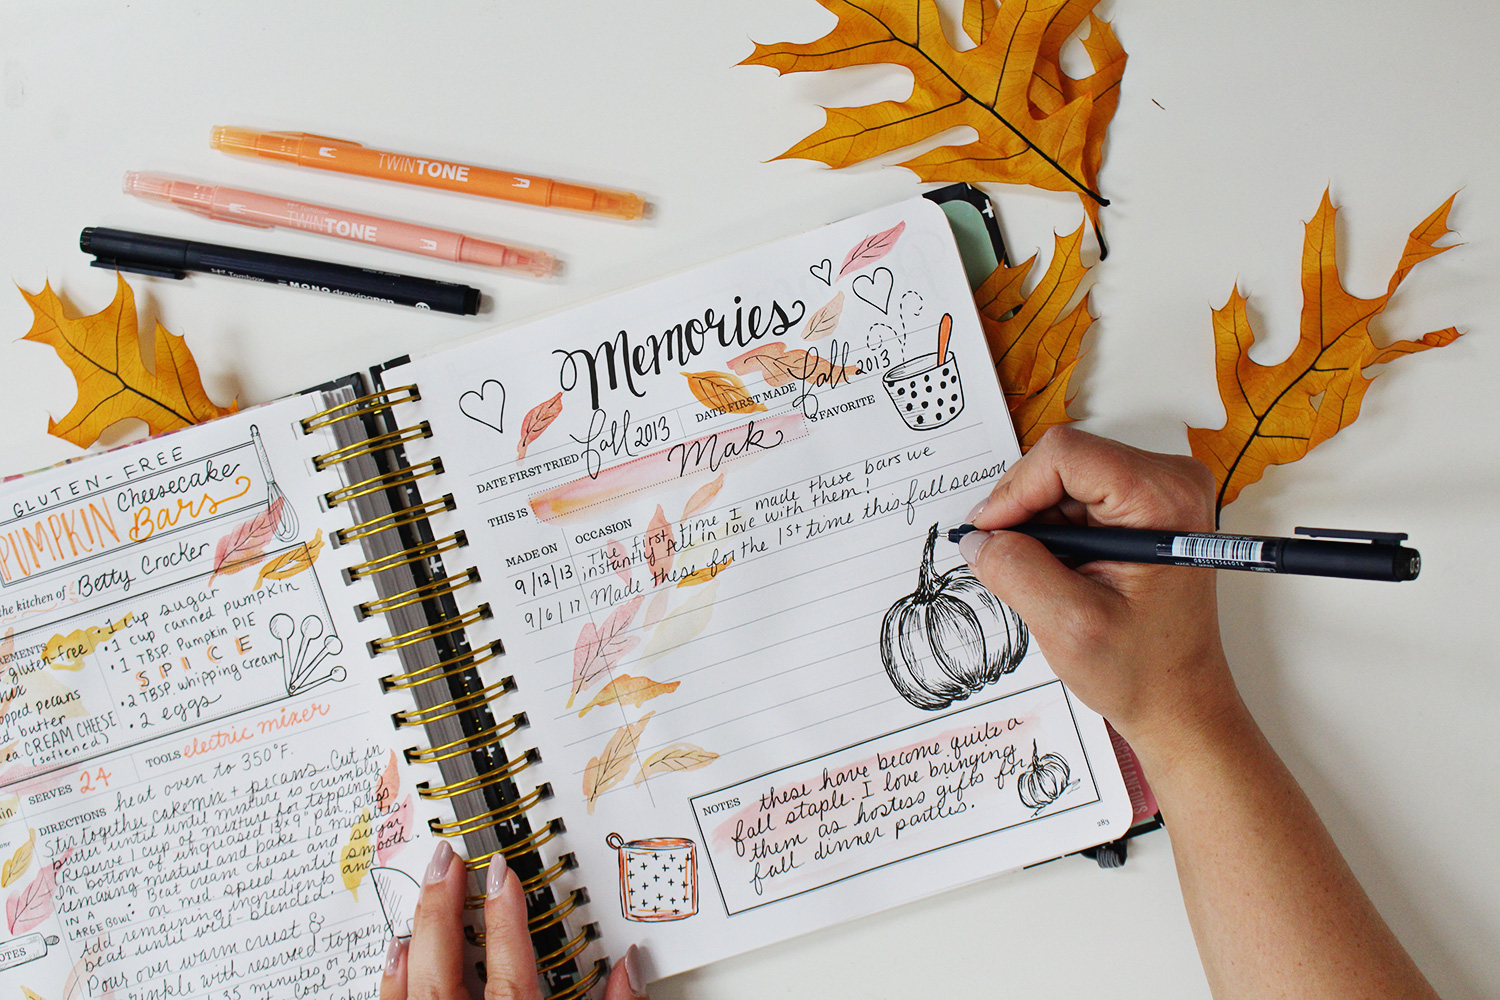 TWINTONE
TWINTONE
Tombow MONO drawing pen
GLUTEN-FREE
PUMPKIN Cheesecake
Bars
the kitchen of Betty Crocker
• 1 cup sugar
• 1 cup canned pumpkin
• 1 TBSP. Pumpkin PIE
SPICE
• 2 TBSP. whipping cream
• 2 eggs
gluten-free
mix
pecans
butter
CREAM CHEESE
(softened)
SERVES 24
TOOLS electric mixer
DIRECTIONS heat oven to 350°F.
Stir together cakemix + pecans. Cut in
butter until mixture is crumbly.
(Reserve 1 cup of mixture for topping)
In bottom of ungreased 13x9" pan, press
remaining mixture and bake 10 minutes.
IN A
LARGE BOWL • Beat cream cheese and sugar
on med speed until smooth
Add remaining ingredients and
beat until well-blended.
Pour over warm crust &
sprinkle with reserved topping
35 minutes or until
Cool 30 min
NOTES
Memories
DATE FIRST TRIED fall 2013
DATE FIRST MADE fall 2013
THIS IS Mak 'S FAVORITE
MADE ON
OCCASION
9/12/13 The first time I made these bars we
instantly fell in love with them!
9/6/17 Made these for the 1st time this fall season
NOTES these have become quite a
fall staple. I love bringing
them as hostess gifts for
fall dinner parties.
283
AMERICAN TOMBOW INC.
085014564014
MADE IN JAPAN